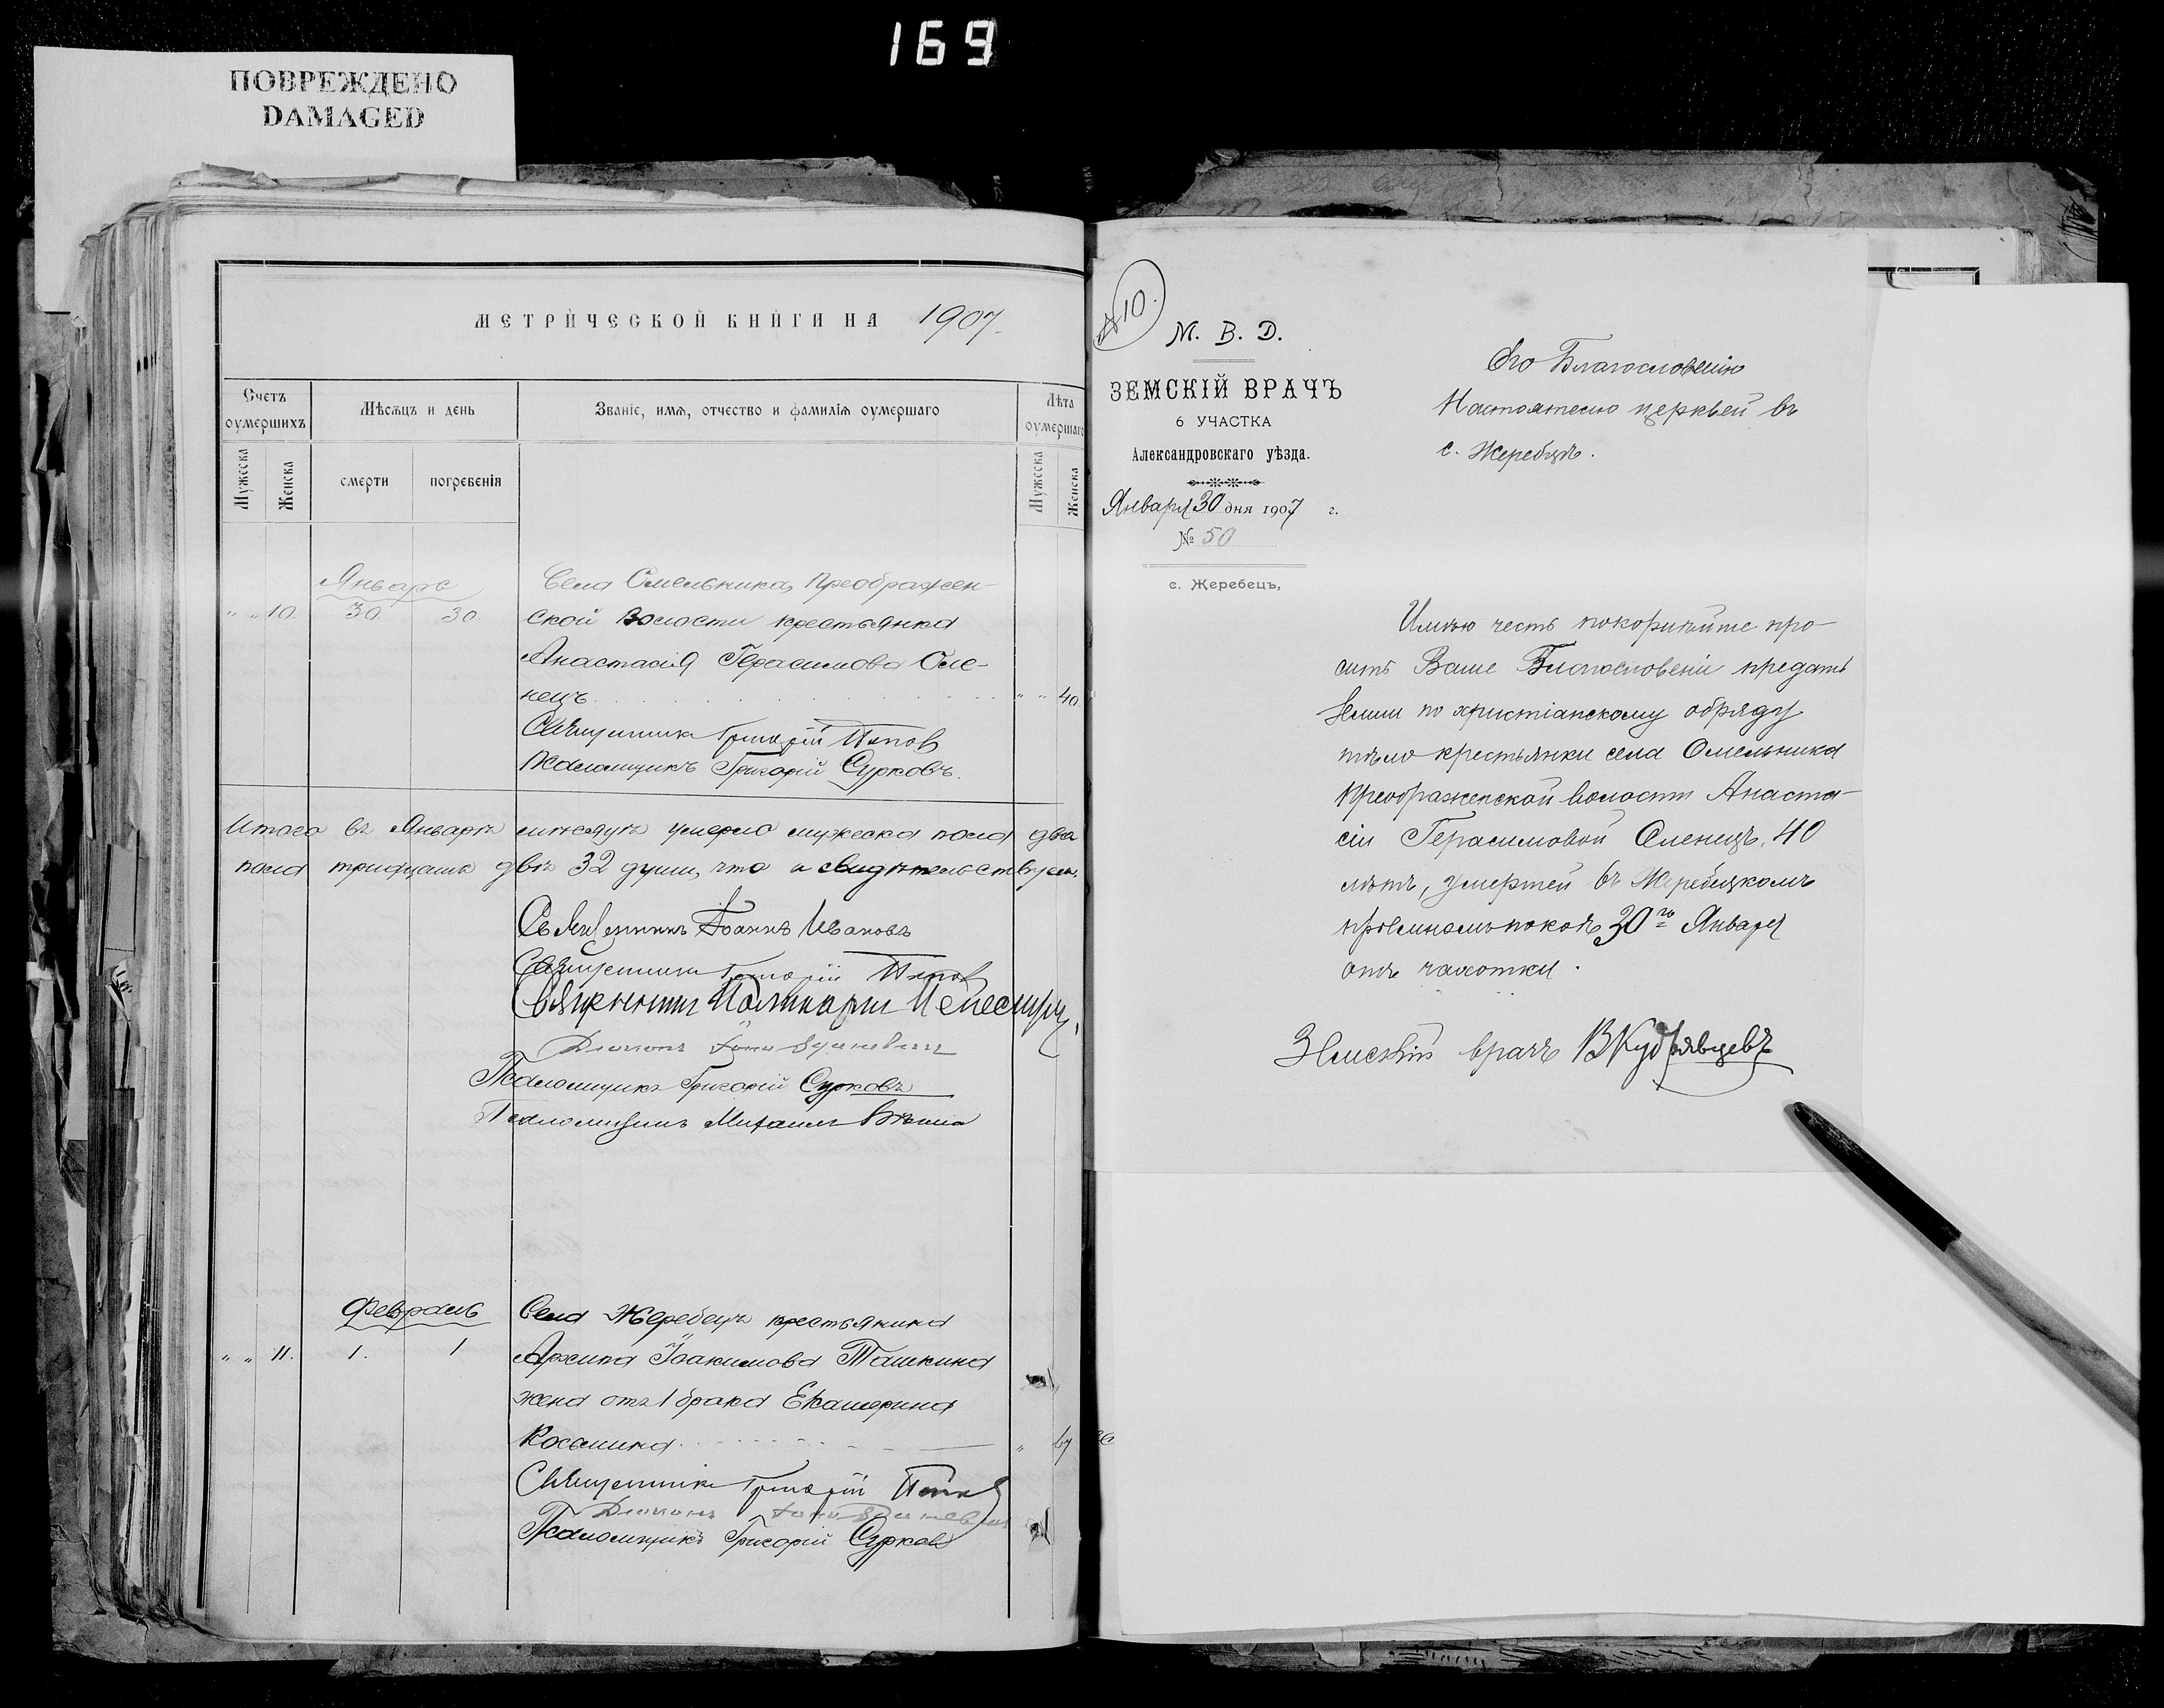 169
ПОВРЕЖДЕНО
DAMAGED
МЕТРИЧЕСКОЙ КНИГИ НА 1907.
Счетъ оумершихъ
Мѣсѧцъ и день
Званіе, имѧ, отчество и фамиліѧ оумершаго
Лѣта оумершаго
Мужеска
Женска
смерти
погребенія
Мужеска
Женска
Январь
" " 10. 30. 30.
Села Омельника, Преображен-
ской волости крестьянка
Анастасія Герасимова Оле-
нецъ " " 40.
Священникъ Григорій Попов
Псаломщикъ Григорій Сурковъ.
Итого въ Январѣ мѣсяцѣ умерло мужеска пола два
пола тридцать двѣ 32 души, что и свидѣтельствуем.
Священникъ Іоаннъ Ивановъ
Священникъ Григорій Попов
Священникъ
Діаконъ
Псаломщикъ Григорій Сурковъ
Псаломщикъ Михаилъ
Февраль
" " 11. 1. 1
Села Жеребецъ крестьянина
Архипа Іоакимова Ташкина
жена отъ 1 брака Екатерина
Косьмина " 67
Священникъ Григорій Попов
Діаконъ
Псаломщикъ Григорій Сурков
№ 10.
М. В. Д.
ЗЕМСКІЙ ВРАЧЪ
6 УЧАСТКА
Александровскаго уѣзда.
Января 30 дня 1907 г.
№ 50
с. Жеребецъ,
Его Благословенію
Настоятелю церквей въ
с. Жеребцѣ.
Имѣю честь покорнѣйше про-
сить Ваше Благословеніе предать
земли по христіанскому обряду
тѣло крестьянки села Омельника
Преображенской волости Анаста-
сіи Герасимовой Оленецъ, 40
лѣтъ, умершей въ Жеребецкомъ
пріемномъ покоѣ 30го Января
отъ чахотки.
Земскій врачъ В Кудрявцевъ